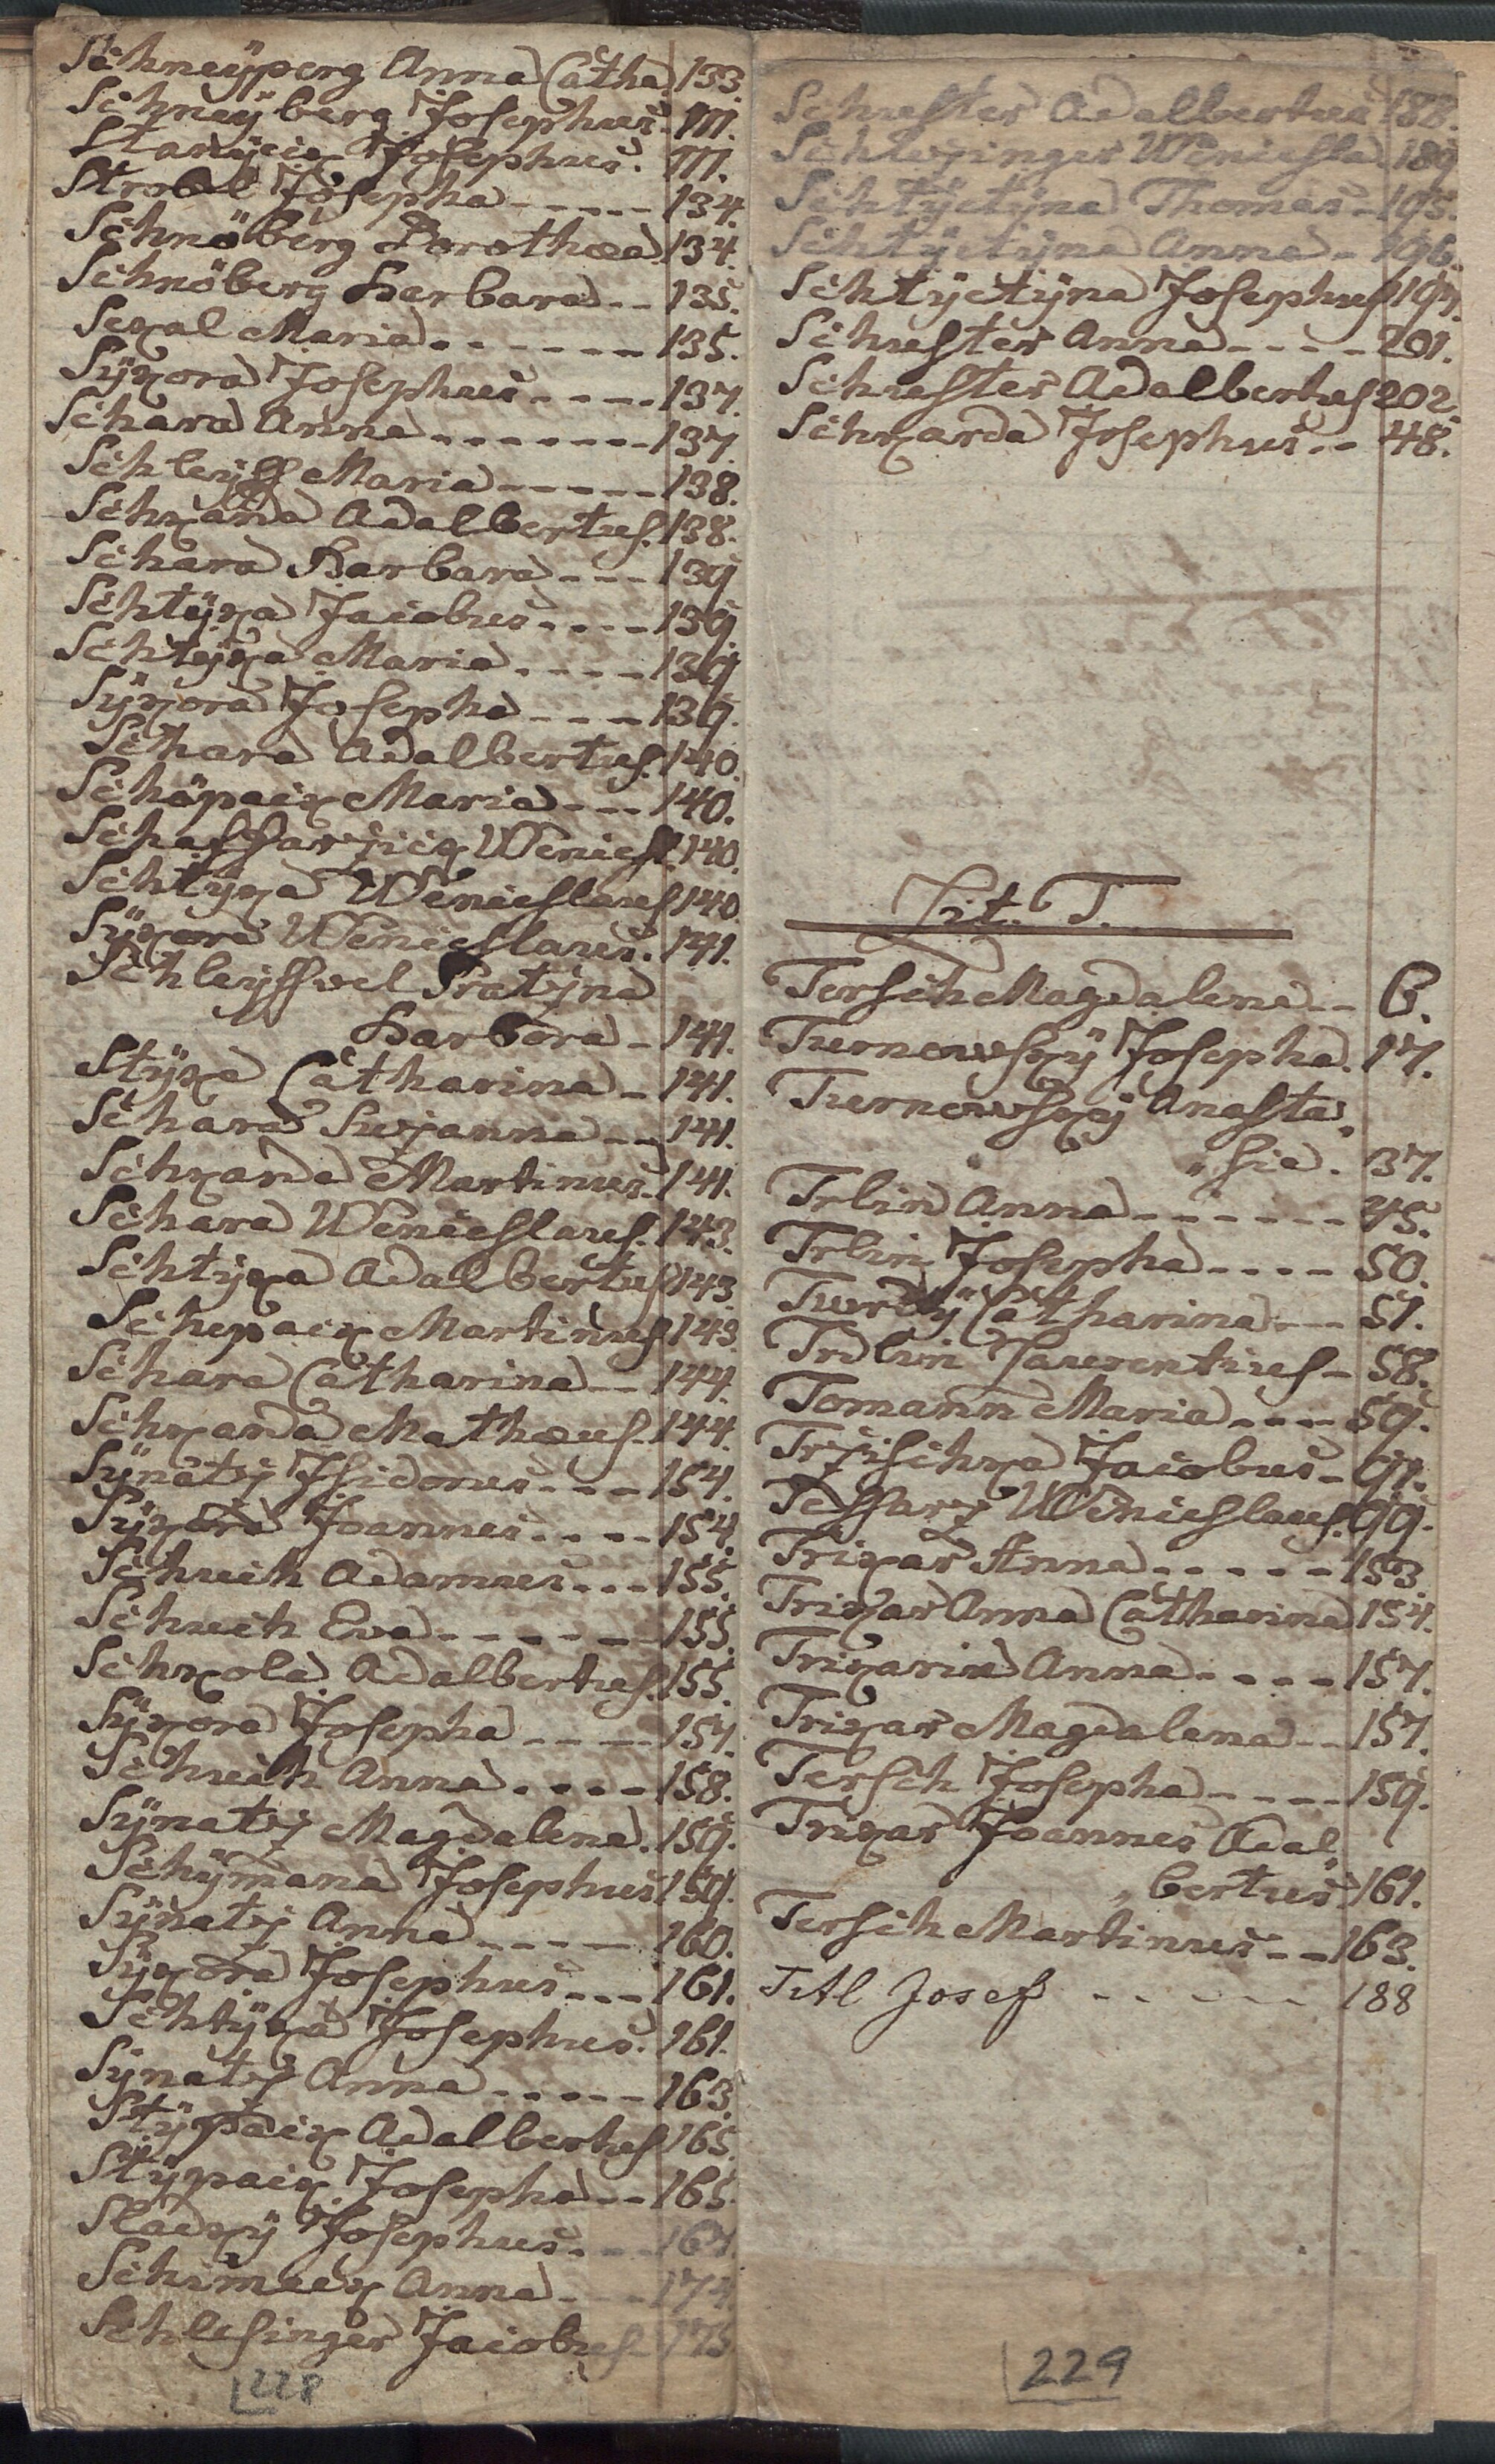 Schneÿperg Anna Catha 133.
Schneÿberg Josephus. 111.
Stanÿcix Josephus. 111.
Strobl Josepha ----- 134.
Schnöberg Dorothæa 134.
Schnöberg Barbara -- 135.
Sexal Maria ------- 135.
Sÿxora Josephus ---- 137.
Schara Anna ------- 137.
Schleÿff Maria ----- 138.
Schxarda Adalbertus. 138.
Schara Barbara --- 139
Schtÿxa Jacobus ---- 139.
Schtÿxa Maria ---- 139
Sÿxora Josepha --- 139.
Schara Adalbertus. 140.
Schöpacix Maria --- 140.
Schaffarzicix Wencesl. 140.
Schtÿxa Wenceslaus 140
Sÿxora Wenceslaus. 141.
Schleÿff vel Pratÿna
Barbora - 141.
Stÿxa Catharina - 141.
Schara Suzanna -- 141.
Schxarda Martinus. 141.
Schara Wenceslaus. 143.
Schtÿxa Adalbertus 143.
Schepacix Martinus 143
Schara Catharina -- 144.
Schxarda Mathæus. 144.
Sÿnatÿ Isidorus --- 154.
Sÿxora Joannes ---- 154.
Schuch Adamus --- 155.
Schuch Eva ------- 155.
Schxola Adalbertus. 155.
Sÿxora Josepha ---- 157.
Schuch Anna ---- 158.
Sÿnatÿ Magdalena. 159.
Schÿmana Josephus 159.
Sÿnatÿ Anna ----- 160.
Sÿxora Josephus --- 161.
Schtÿxa Josephus. 161.
Sÿnatÿ Anna ----- 163.
Stÿpacix Adalbertus 165.
Stÿpacix Josepha -- 165.
Sladxÿ Josephus. -- 167.
Schimecx Anna. -- 174
Schlesinger Jacobus - 175
228
Schuster Adalbertus 188.
Schlezinger Wencesla 189
Schtÿctÿna Thomas - 195.
Schtÿctÿna Anna - 196.
Schtÿctÿna Josephus 197.
Schuster Anna ---- 201.
Schuster Adalbertus 202.
Schxarda Josephus -- 48.
Lit. T.
Tersch Magdalena -- 6.
Turnowsxÿ Josepha. 17.
Turnowsxÿ Anasta„
„sia. 37.
Trlin Anna ------ 45.
Trlin Josepha ---- 50.
Twrdÿ Catharina --- 51.
Trlin Laurentius - 58.
Tomann Maria --- 59.
Trzischxa Jacobus - 97.
Tessarz Wenceslaus. 99.
Trixar Anna ----- 153.
Trixar Anna Catharina 154.
Trixarin Anna ---- 157.
Trixar Magdalena -- 157.
Tersch Josepha ---- 159.
Trixar Joannes Adal„
„bertus. 161.
Tersch Martinus -- 163.
Titl Josef ----- 188
229